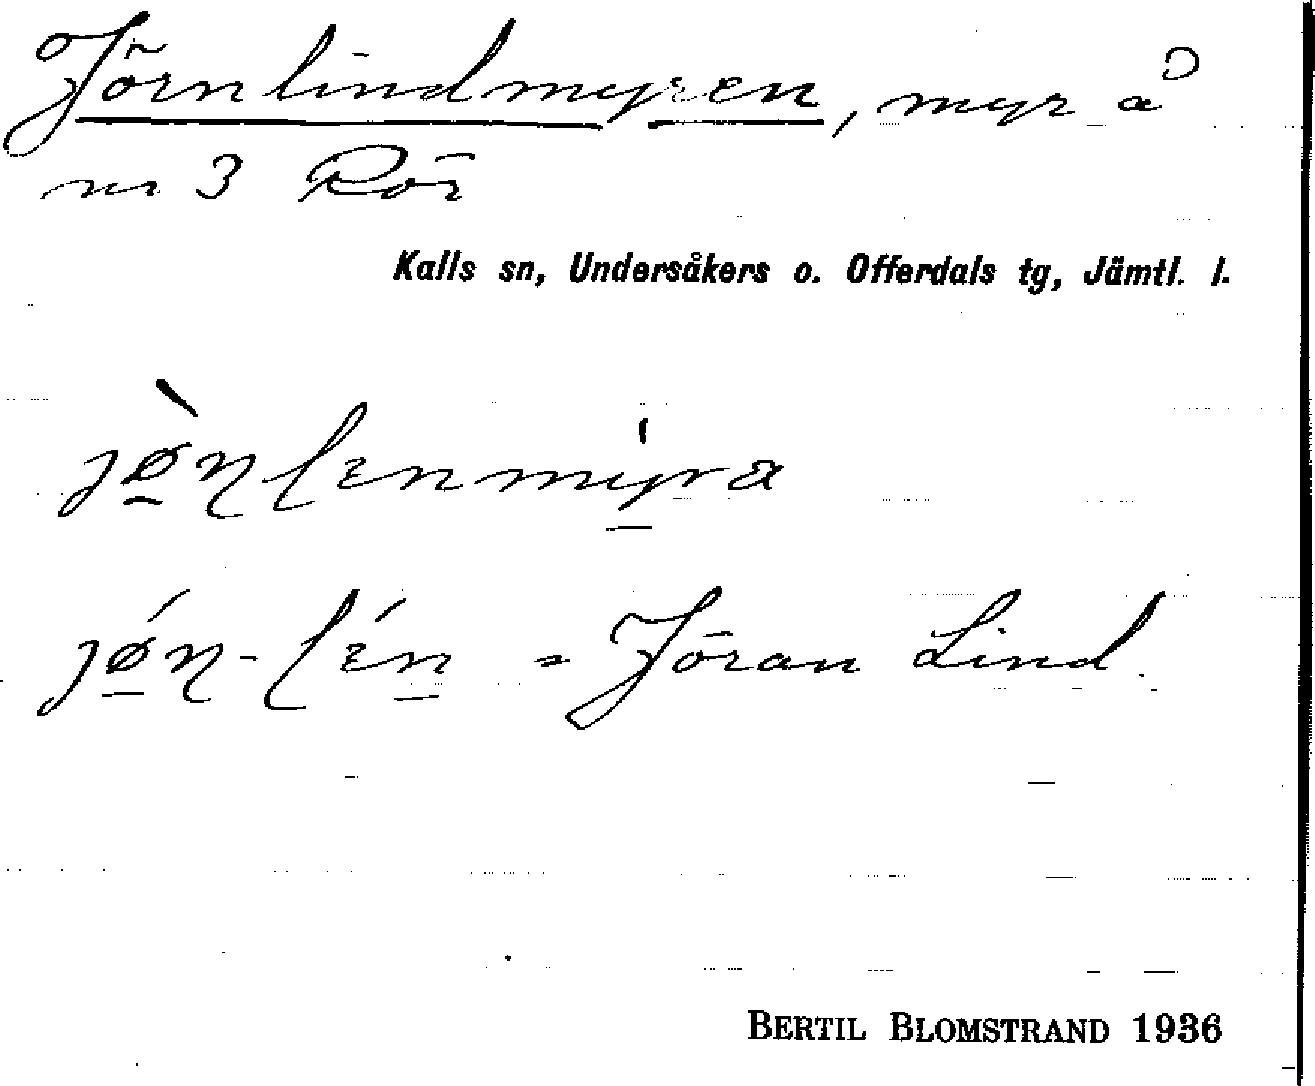 Jörnlindmyren, myr å
nr 3 Rör
Kalls sn, Undersåkers o. Offerdals tg, Jämtl. l.
jø̀ɳlenmýra
jǿɳ-lén = Jöran Lind
BERTIL BLOMSTRAND 1936